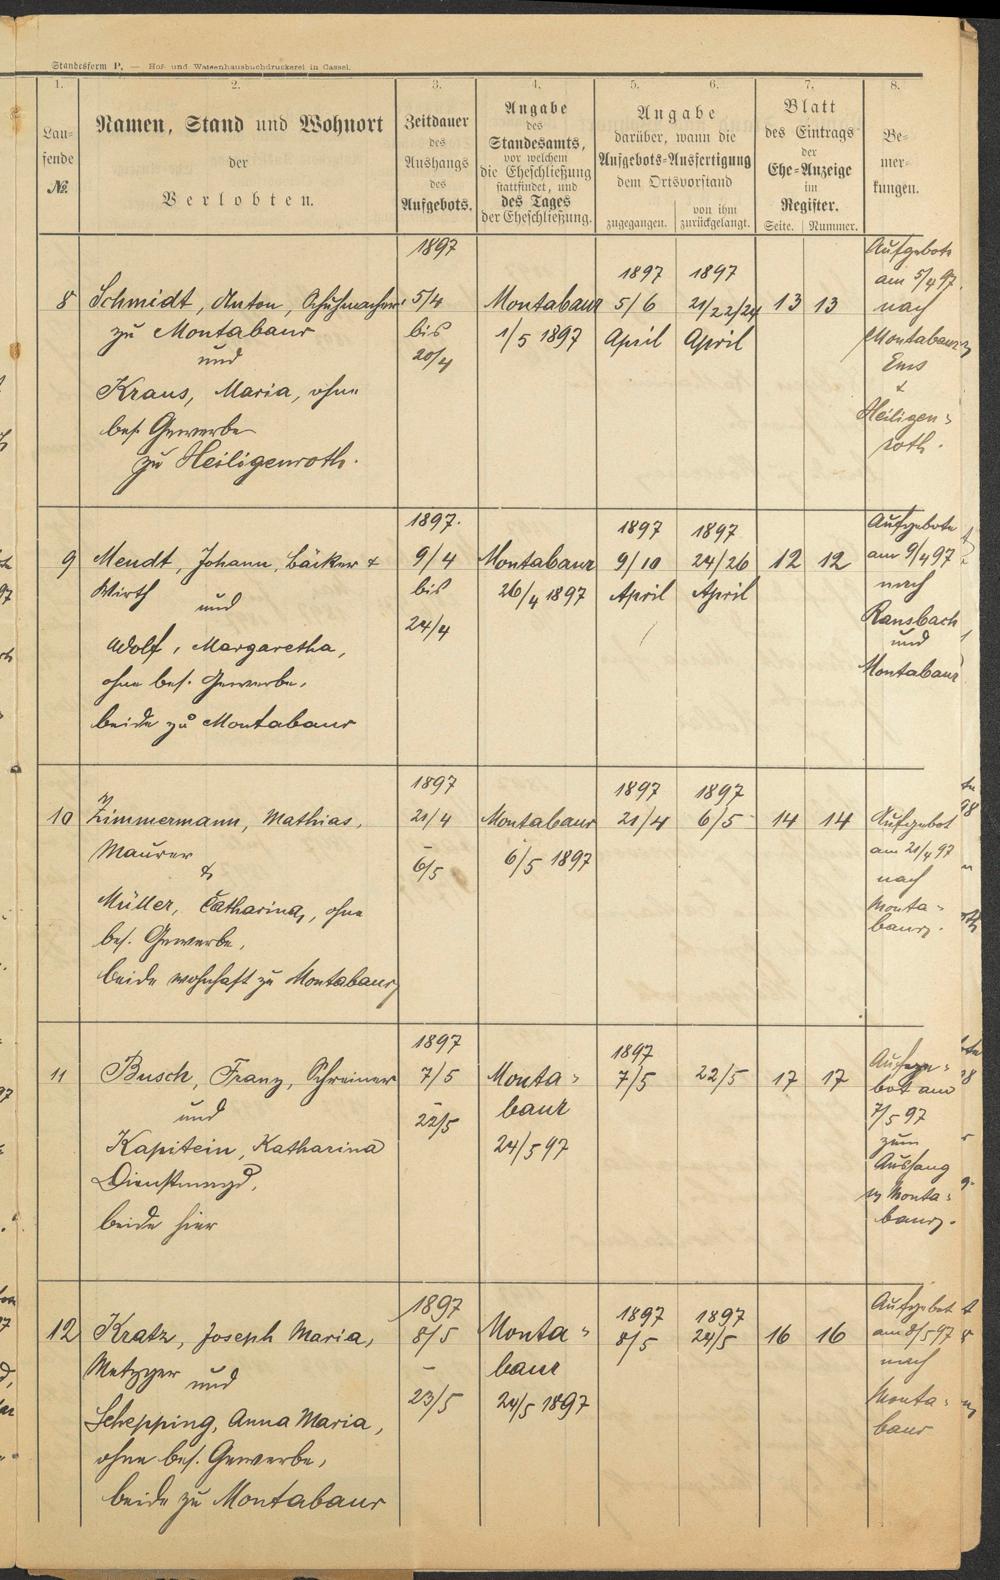 Standesform P. — Hof- und Waisenhausbuchdruckerei in Cassel.
1. 2. 3. 4. 5. 6. 7. 8.
Lau-
fende
№.
Namen, Stand und Wohnort
der
Verlobten.
Zeitdauer
des
Aushangs
des
Aufgebots.
Angabe
des
Standesamts,
vor welchem
die Eheschließung
stattfindet, und
des Tages
der Eheschließung.
Angabe
darüber, wann die
Aufgebots-Ausfertigung
dem Ortsvorstand
zugegangen.
von ihm
zurückgelangt.
Blatt
des Eintrags
der
Ehe-Anzeige
im
Register.
Seite. Nummer.
Be-
mer-
kungen.
8
Schmidt, Anton, Schuhmacher
zu Montabaur
und
Kraus, Maria, ohne
bes. Gewerbe
zu Heiligenroth.
1897
5/4
bis
20/4
Montabaur
1/5 1897
1897
5/6
April
1897
21/22/24
April
13 13
Aufgebote
am 5/4 97.
nach
Montabaur,
Ems
&
Heiligen-
roth.
9
Mendt, Johann, Bäcker &
Wirth
und
Adolf, Margaretha,
ohne bes. Gewerbe,
beide zu Montabaur
1897.
9/4
bis
24/4
Montabaur
26/4 1897
1897
9/10
April
1897
24/26
April
12 12
Aufgebote
am 9/4 97
nach
Ransbach
und
Montabaur
10
Zimmermann, Mathias,
Maurer
&
Müller, Catharina, ohne
bes. Gewerbe,
beide wohnhaft zu Montabaur
1897
21/4
-
6/5
Montabaur
6/5 1897
1897
21/4
1897
6/5
14 14
Aufgebot
am 21/4 97
nach
Monta-
baur.
11
Busch, Franz, Schreiner
und
Kapitein, Katharina
Dienstmagd,
beide hier
1897
7/5
-
22/5
Monta-
baur
24/5 97
1897
7/5
22/5
17 17
Aufge-
bot am
7/5 97
zum
Aushang
in Monta-
baur.
12
Kratz, Joseph Maria,
Metzger
und
Schepping, Anna Maria,
ohne bes. Gewerbe,
beide zu Montabaur
1897
8/5
-
23/5
Monta-
baur
24/5 1897
1897
8/5
1897
24/5
16 16
Aufgebot
am 8/5 97
nach
Monta-
baur